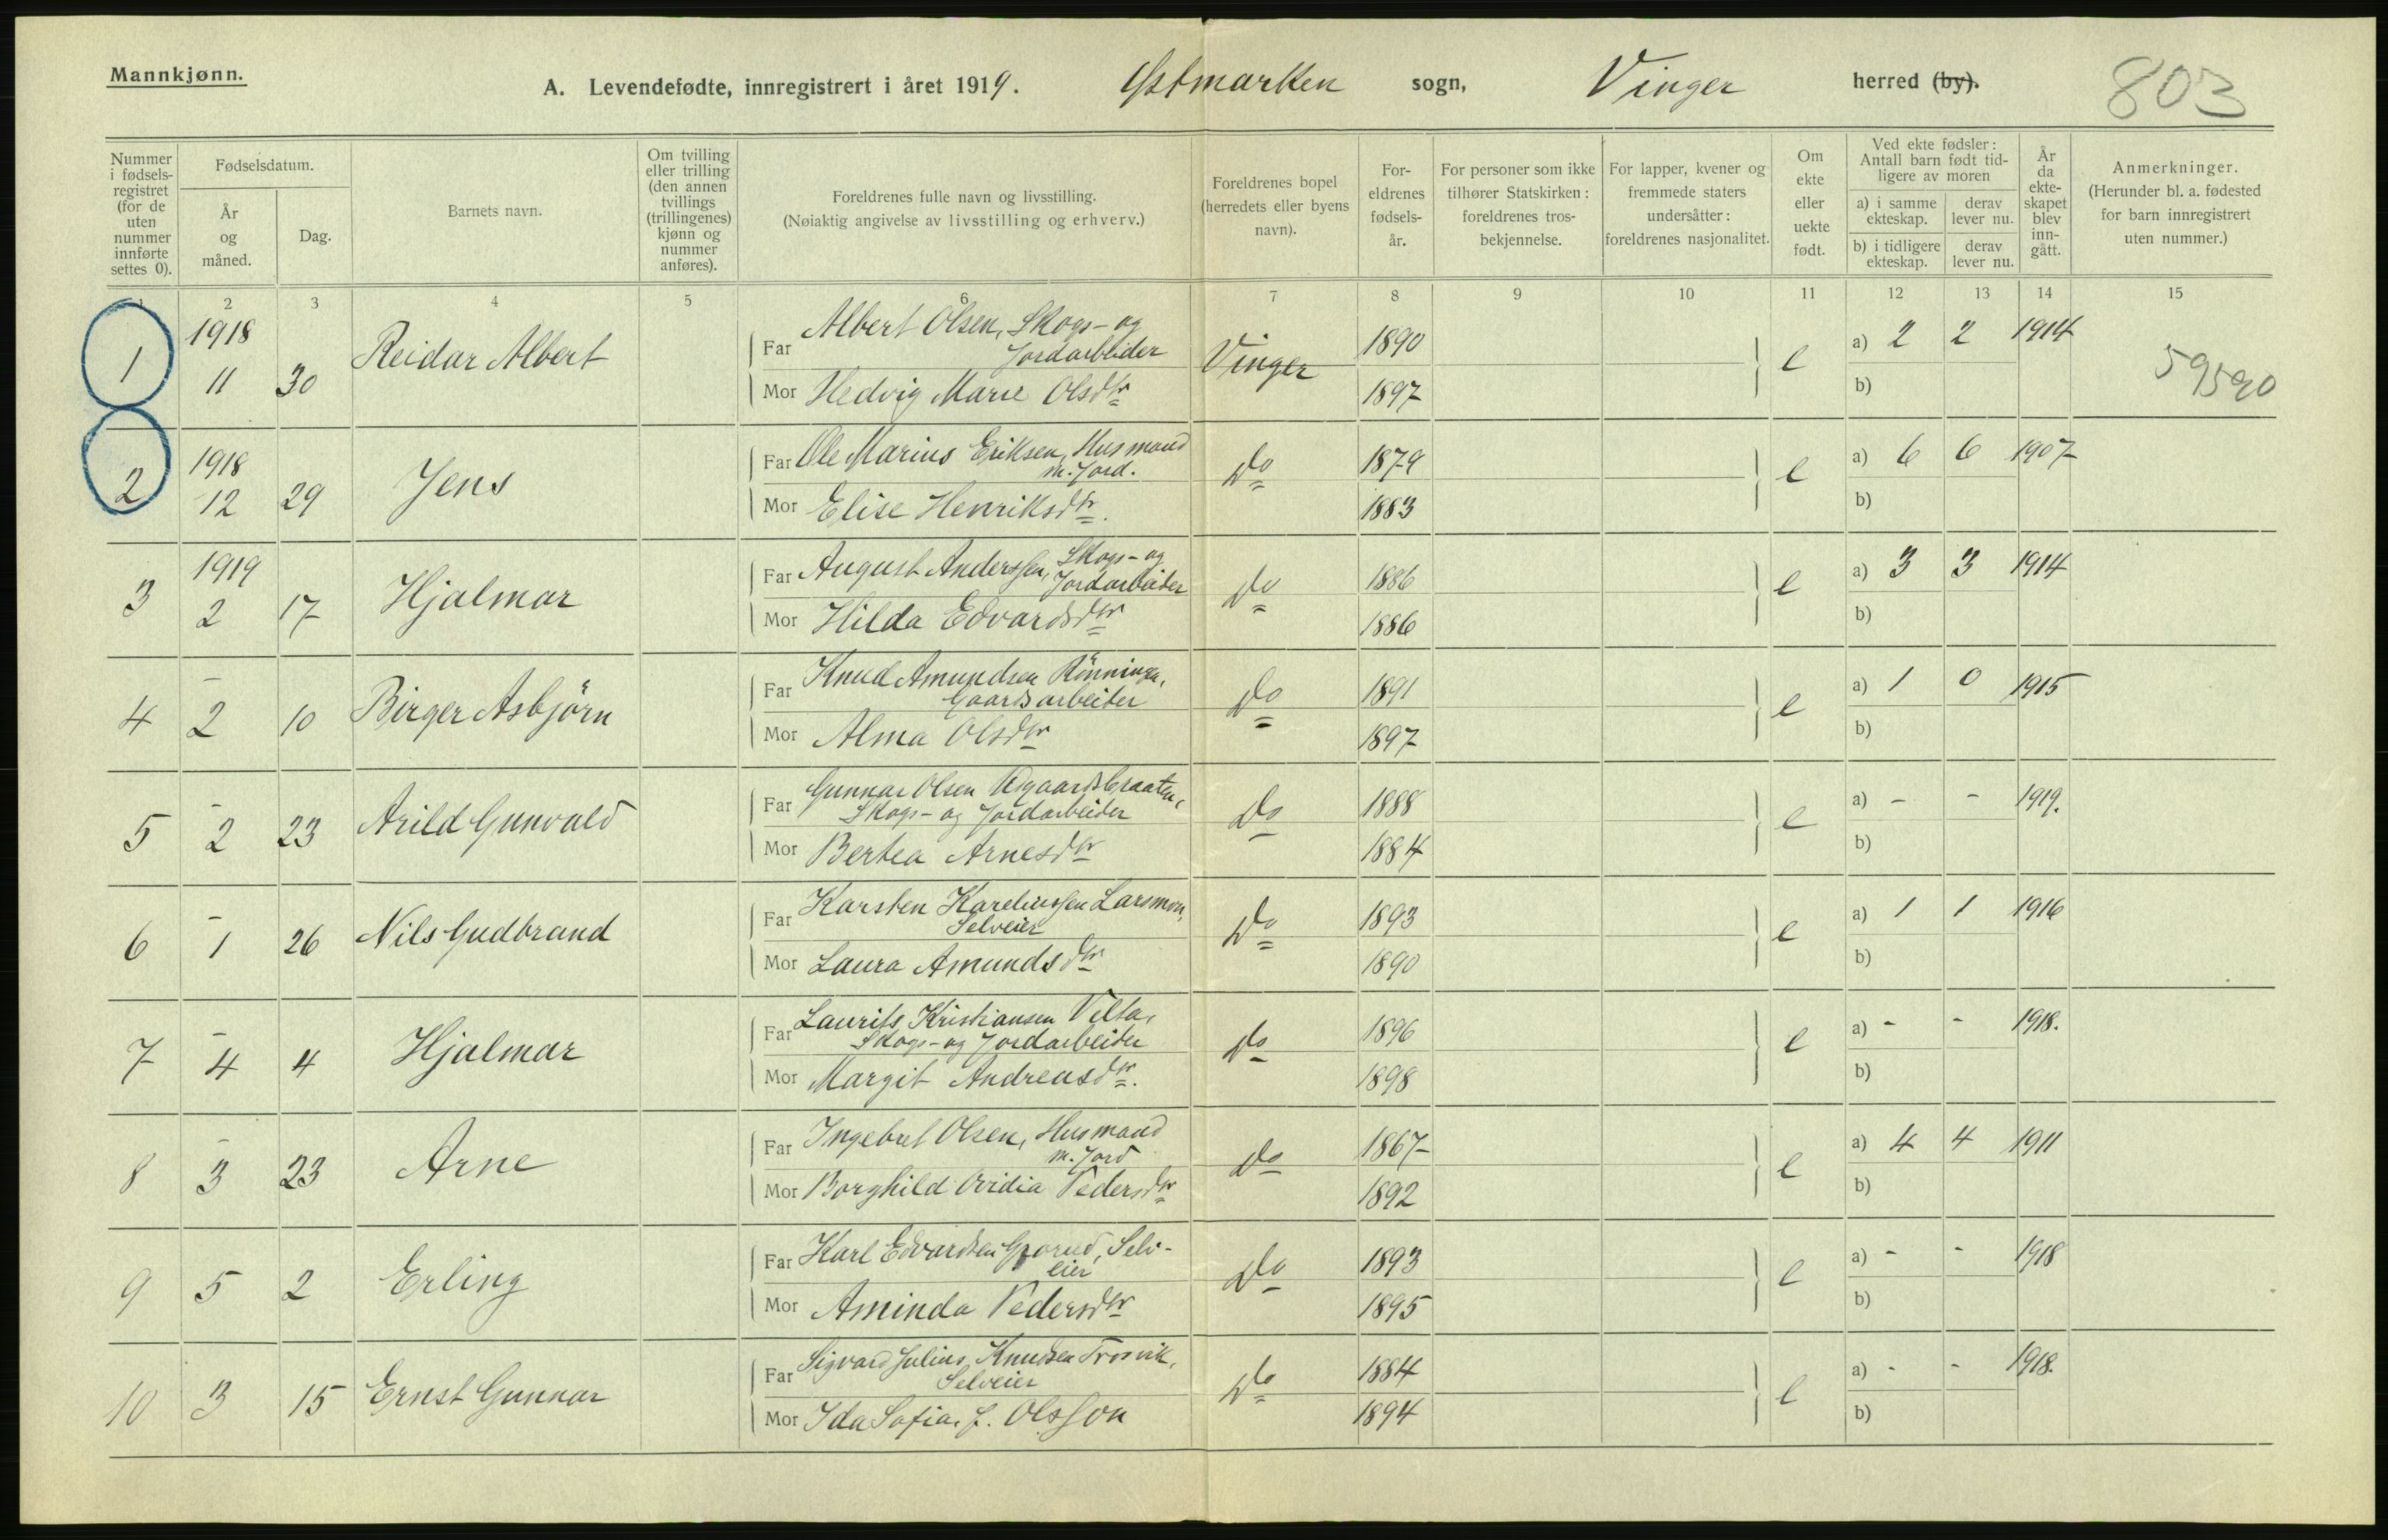 Mannkjønn.
A. Levendefødte, innregistrert i året 1919. Østmarken sogn, Vinger herred (by). 803
Nummer i fødsels-registret (for de uten nummer innførte settes 0).
Fødselsdatum.
År og måned.
Dag.
Barnets navn.
Om tvilling eller trilling (den annen tvillings (trillingenes) kjønn og nummer anføres).
Foreldrenes fulle navn og livsstilling.
(Nøiaktig angivelse av livsstilling og erhverv.)
Foreldrenes bopel (herredets eller byens navn).
For-eldrenes fødsels-år.
For personer som ikke tilhører Statskirken: foreldrenes tros-bekjennelse.
For lapper, kvener og fremmede staters undersåtter: foreldrenes nasjonalitet.
Om ekte eller uekte født.
Ved ekte fødsler: Antall barn født tid-ligere av moren
a) i samme ekteskap. derav lever nu.
b) i tidligere ekteskap. derav lever nu.
År da ekte-skapet blev inn-gått.
Anmerkninger.
(Herunder bl. a. fødested for barn innregistrert uten nummer.)
1 2 3 4 5 6 7 8 9 10 11 12 13 14 15
1 1918 11 30 Reidar Albert
Far Albert Olsen, Skogs- og Jordarbeider Vinger 1890 e a) 2 2 1914
Mor Hedvig Marie Olsdtr 1897 b) 59590
2 1918 12 29 Jens
Far Ole Marius Eriksen, Husmand m. Jord. Do 1879 e a) 6 6 1907
Mor Elise Henriksdtr. 1883 b)
3 1919 2 17 Hjalmar
Far August Anderssen, Skogs- og Jordarbeider Do 1886 e a) 3 3 1914
Mor Hilda Edvardsdtr 1886 b)
4 - 2 10 Birger Asbjörn
Far Knud Amundsen Rönningen, Gaardsarbeider Do 1891 e a) 1 0 1915
Mor Alma Olsdtr 1897 b)
5 - 2 23 Arild Gunvald
Far Gunnar Olsen Skogs- og Jordarbeider Do 1888 e a) - - 1919.
Mor Bertea Arnesdtr 1884 b)
6 - 1 26 Nils Gudbrand
Far Karsten Kareliussen Larsmon, Selveier Do 1893 e a) 1 1 1916
Mor Laura Amundsdtr 1890 b)
7 - 4 4 Hjalmar
Far Laurits Kristiansen Velta, Skogs- og Jordarbeider Do 1896 e a) - - 1918.
Mor Margit Andreasdtr. 1898 b)
8 - 3 23 Arne
Far Ingebret Olsen, Husmand m. Jord Do 1867 e a) 4 4 1911
Mor Borghild Ovidia Pedersdtr 1892 b)
9 5 2 Erling
Far Karl Edvardsen Selv-eier Do 1893 e a) - - 1918
Mor Aminda Pedersdtr 1895 b)
10 3 15 Ernst Gunnar
Far Sigvard Julius Knudsen Trosvik, Selveier Do 1884 e a) - - 1918.
Mor Ida Sofia f. Olsson 1894 b)